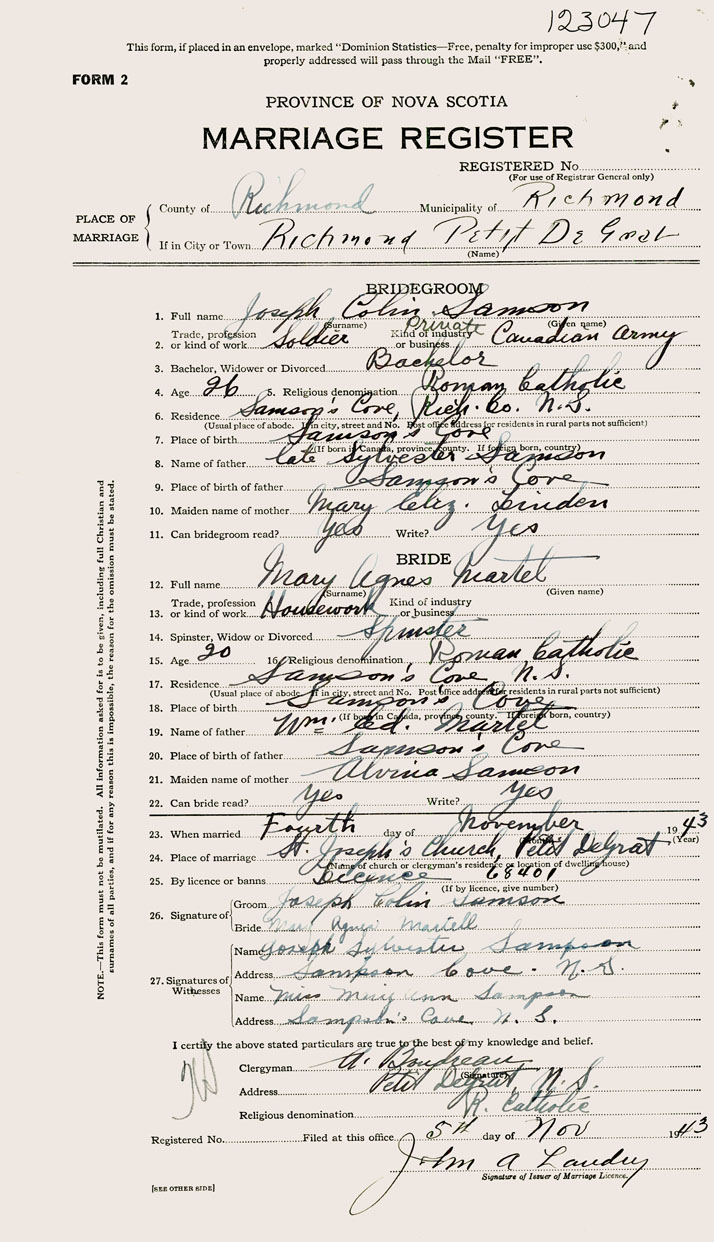 123047
This form, if placed in an envelope, marked "Dominion Statistics—Free, penalty for improper use $300," and
properly addressed will pass through the Mail "FREE".
FORM 2
PROVINCE OF NOVA SCOTIA
MARRIAGE REGISTER
REGISTERED No.
(For use of Registrar General only)
PLACE OF MARRIAGE
County of Richmond Municipality of Richmond
If in City or Town Richmond Petit De Grat
(Name)
BRIDEGROOM
1. Full name Joseph Colin Samson
(Surname) (Given name)
2. Trade, profession or kind of work Soldier Kind of industry or business Private Canadian Army
3. Bachelor, Widower or Divorced Bachelor
4. Age 26 5. Religious denomination Roman Catholic
6. Residence Samson's Cove, Rich. Co. N.S.
(Usual place of abode. If in city, street and No. Post office address for residents in rural parts not sufficient)
7. Place of birth Samson's Cove
(If born in Canada, province, county. If foreign born, country)
8. Name of father late Sylvester Samson
9. Place of birth of father Samson's Cove
10. Maiden name of mother Mary Eliz. Linden
11. Can bridegroom read? Yes Write? Yes
BRIDE
12. Full name Mary Agnes Martet
(Surname) (Given name)
13. Trade, profession or kind of work Housework Kind of industry or business
14. Spinster, Widow or Divorced Spinster
15. Age 20 16. Religious denomination Roman Catholic
17. Residence Samson's Cove N.S.
(Usual place of abode. If in city, street and No. Post office address for residents in rural parts not sufficient)
18. Place of birth Samson's Cove
(If born in Canada, province, county. If foreign born, country)
19. Name of father Wm. Ed. Martet
20. Place of birth of father Samson's Cove
21. Maiden name of mother Alvina Samson
22. Can bride read? Yes Write? Yes
23. When married Fourth day of November 1943
(Month) (Year)
24. Place of marriage St. Joseph's Church, Petit DeGrat
(Name of church or clergyman's residence or location of dwelling house)
25. By licence or banns Licence 68401
(If by licence, give number)
26. Signature of
Groom Joseph Colin Samson
Bride Mary Agnes Martell
27. Signatures of Witnesses
Name Joseph Sylvester Sampson
Address Sampson Cove. N.S.
Name Miss Mary Ann Sampson
Address Sampson's Cove N.S.
I certify the above stated particulars are true to the best of my knowledge and belief.
Clergyman A. Boudreau
(Signature)
Address Petit DeGrat, N.S.
Religious denomination R. Catholic
Registered No. Filed at this office 5th day of Nov 1943
John A Landry
Signature of Issuer of Marriage Licence.
[SEE OTHER SIDE]
NOTE.—This form must not be mutilated. All information asked for is to be given, including full Christian and
surnames of all parties, and if for any reason this is impossible, the reason for the omission must be stated.